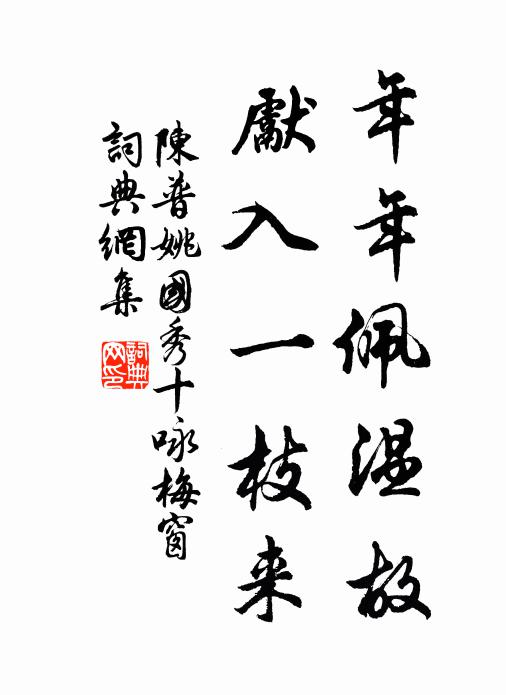 年年佩温故
獻入一枝来
陳普姚國秀十咏梅窗
詞典網集
詞典网印